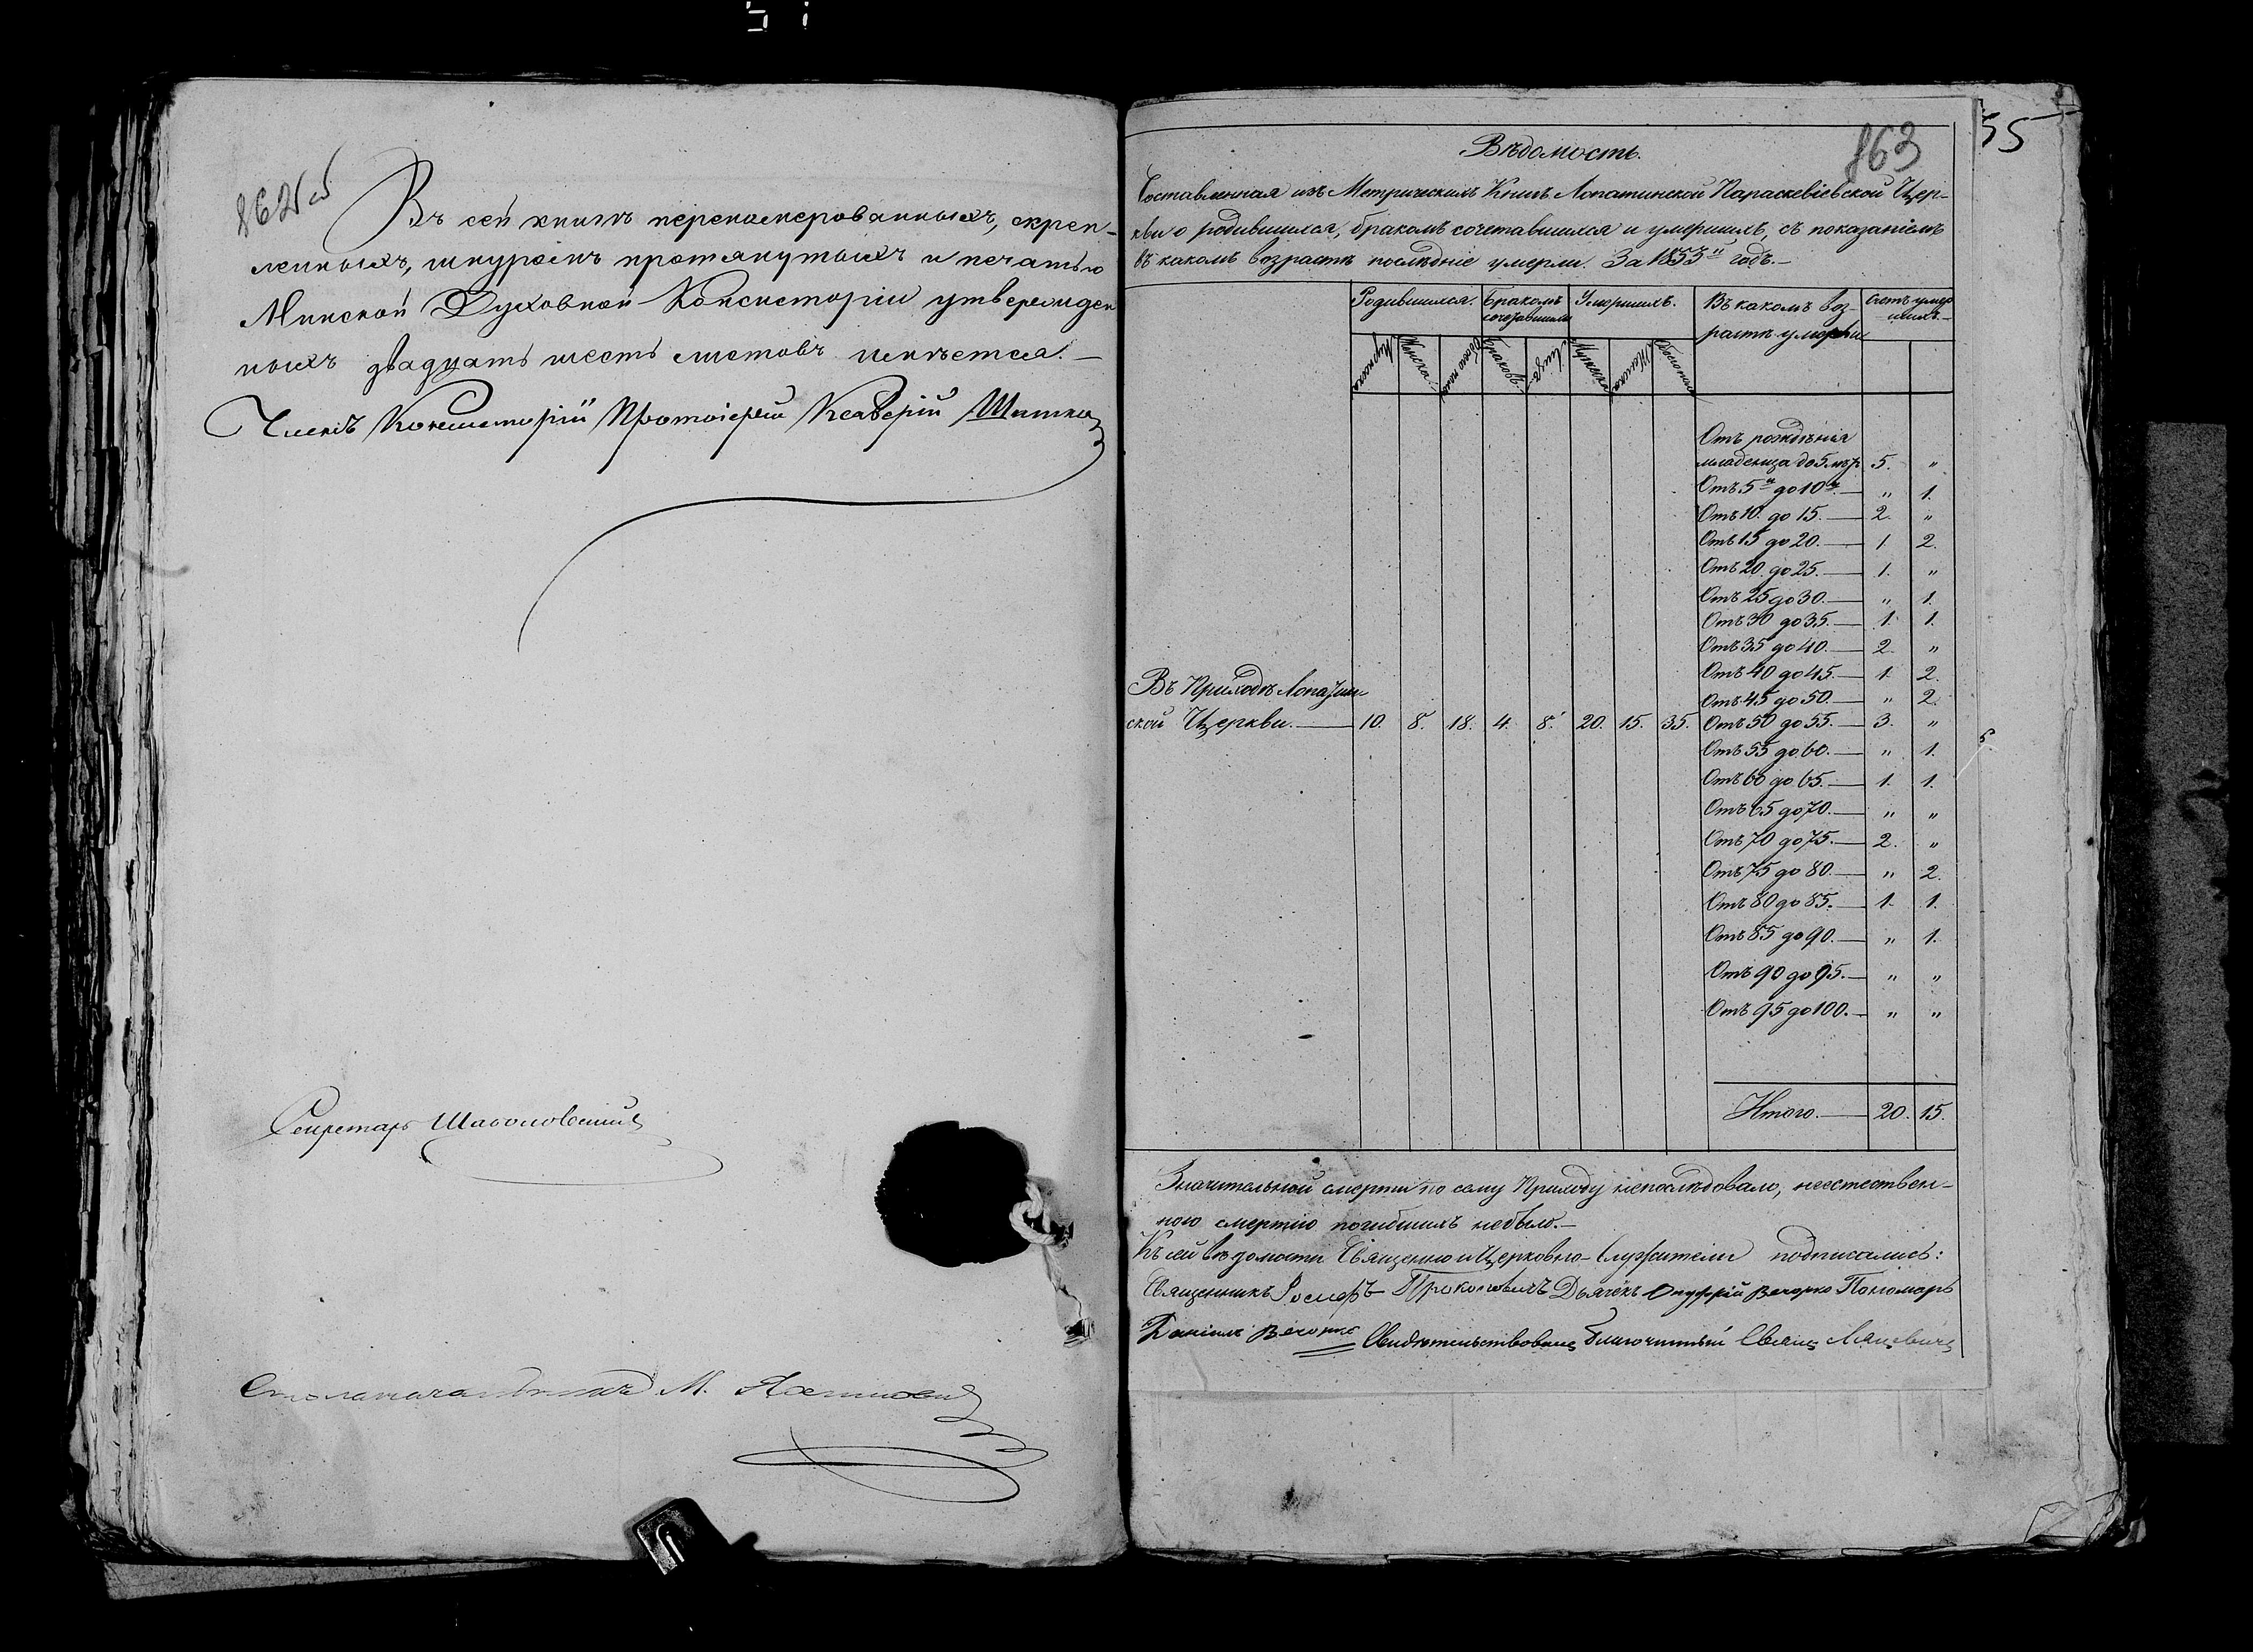 862об
Въ сей книгѣ перенумерованныхъ, скреп-
ленныхъ, шнуромъ протянутыхъ и печатью
Минской Духовной Консисторіи утвержден
ныхъ двадцать шесть листовъ имѣется.—
Членъ Консисторіи Протоіерей
Секретарь
Столоначальникъ М.
55
863
Вѣдомость.
Составленная изъ Метрическихъ Книгъ Лопатинской Параскевіевской Цер-
кви о родившихся, бракомъ сочетавшихся и умершихъ, съ показаніемъ
въ какомъ возрастѣ послѣдніе умерли. За 1853й годъ.—
Родившихся. Бракомъ сочетавшихся Умершихъ. Въ какомъ воз- Счетъ умер
растѣ умерли шихъ.—
Мужеска Женска Обоего пола Браковъ. Лица Мужеска Женска Обоего пола
Отъ рожденія
младенца до 5 5. "
Отъ 5и до 10и.— " 1.
Отъ 10 до 15.— 2. "
Отъ 15 до 20.— 1 2.
Отъ 20 до 25.— 1. "
Отъ 25 до 30.— " 1.
Отъ 30 до 35.— 1. 1.
Отъ 35 до 40.— 2. "
Отъ 40 до 45.— 1 2.
Отъ 45 до 50.— " 2.
Въ Приходѣ Лопатин
ской Церкви.— 10. 8. 18. 4. 8. 20. 15. 35. Отъ 50 до 55.— 3. "
Отъ 55 до 60.— " 1.
Отъ 60 до 65.— 1. 1.
Отъ 65 до 70.— " "
Отъ 70 до 75.— 2. "
Отъ 75 до 80.— " 2.
Отъ 80 до 85.— 1. 1.
Отъ 85 до 90.— " 1.
Отъ 90 до 95.— " "
Отъ 95 до 100.— " "
Итого.— 20. 15.
Значительной смерти по сему Приходу непослѣдовало, неестествен-
ною смертію погибшихъ небыло.—
Къ сей вѣдомости Священно и Церковно-Служители подписались:
Священникъ Іосифъ Прокоповичъ Дьячекъ Онуфрій Вечорко Пономарь
Даніилъ Вечорко Свидѣтельствовалъ Благочинный Свящ